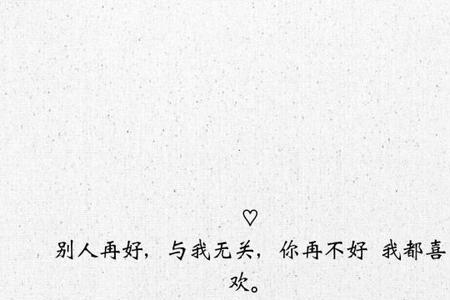 ♡
别人再好，与我无关，你再不好 我都喜
欢。